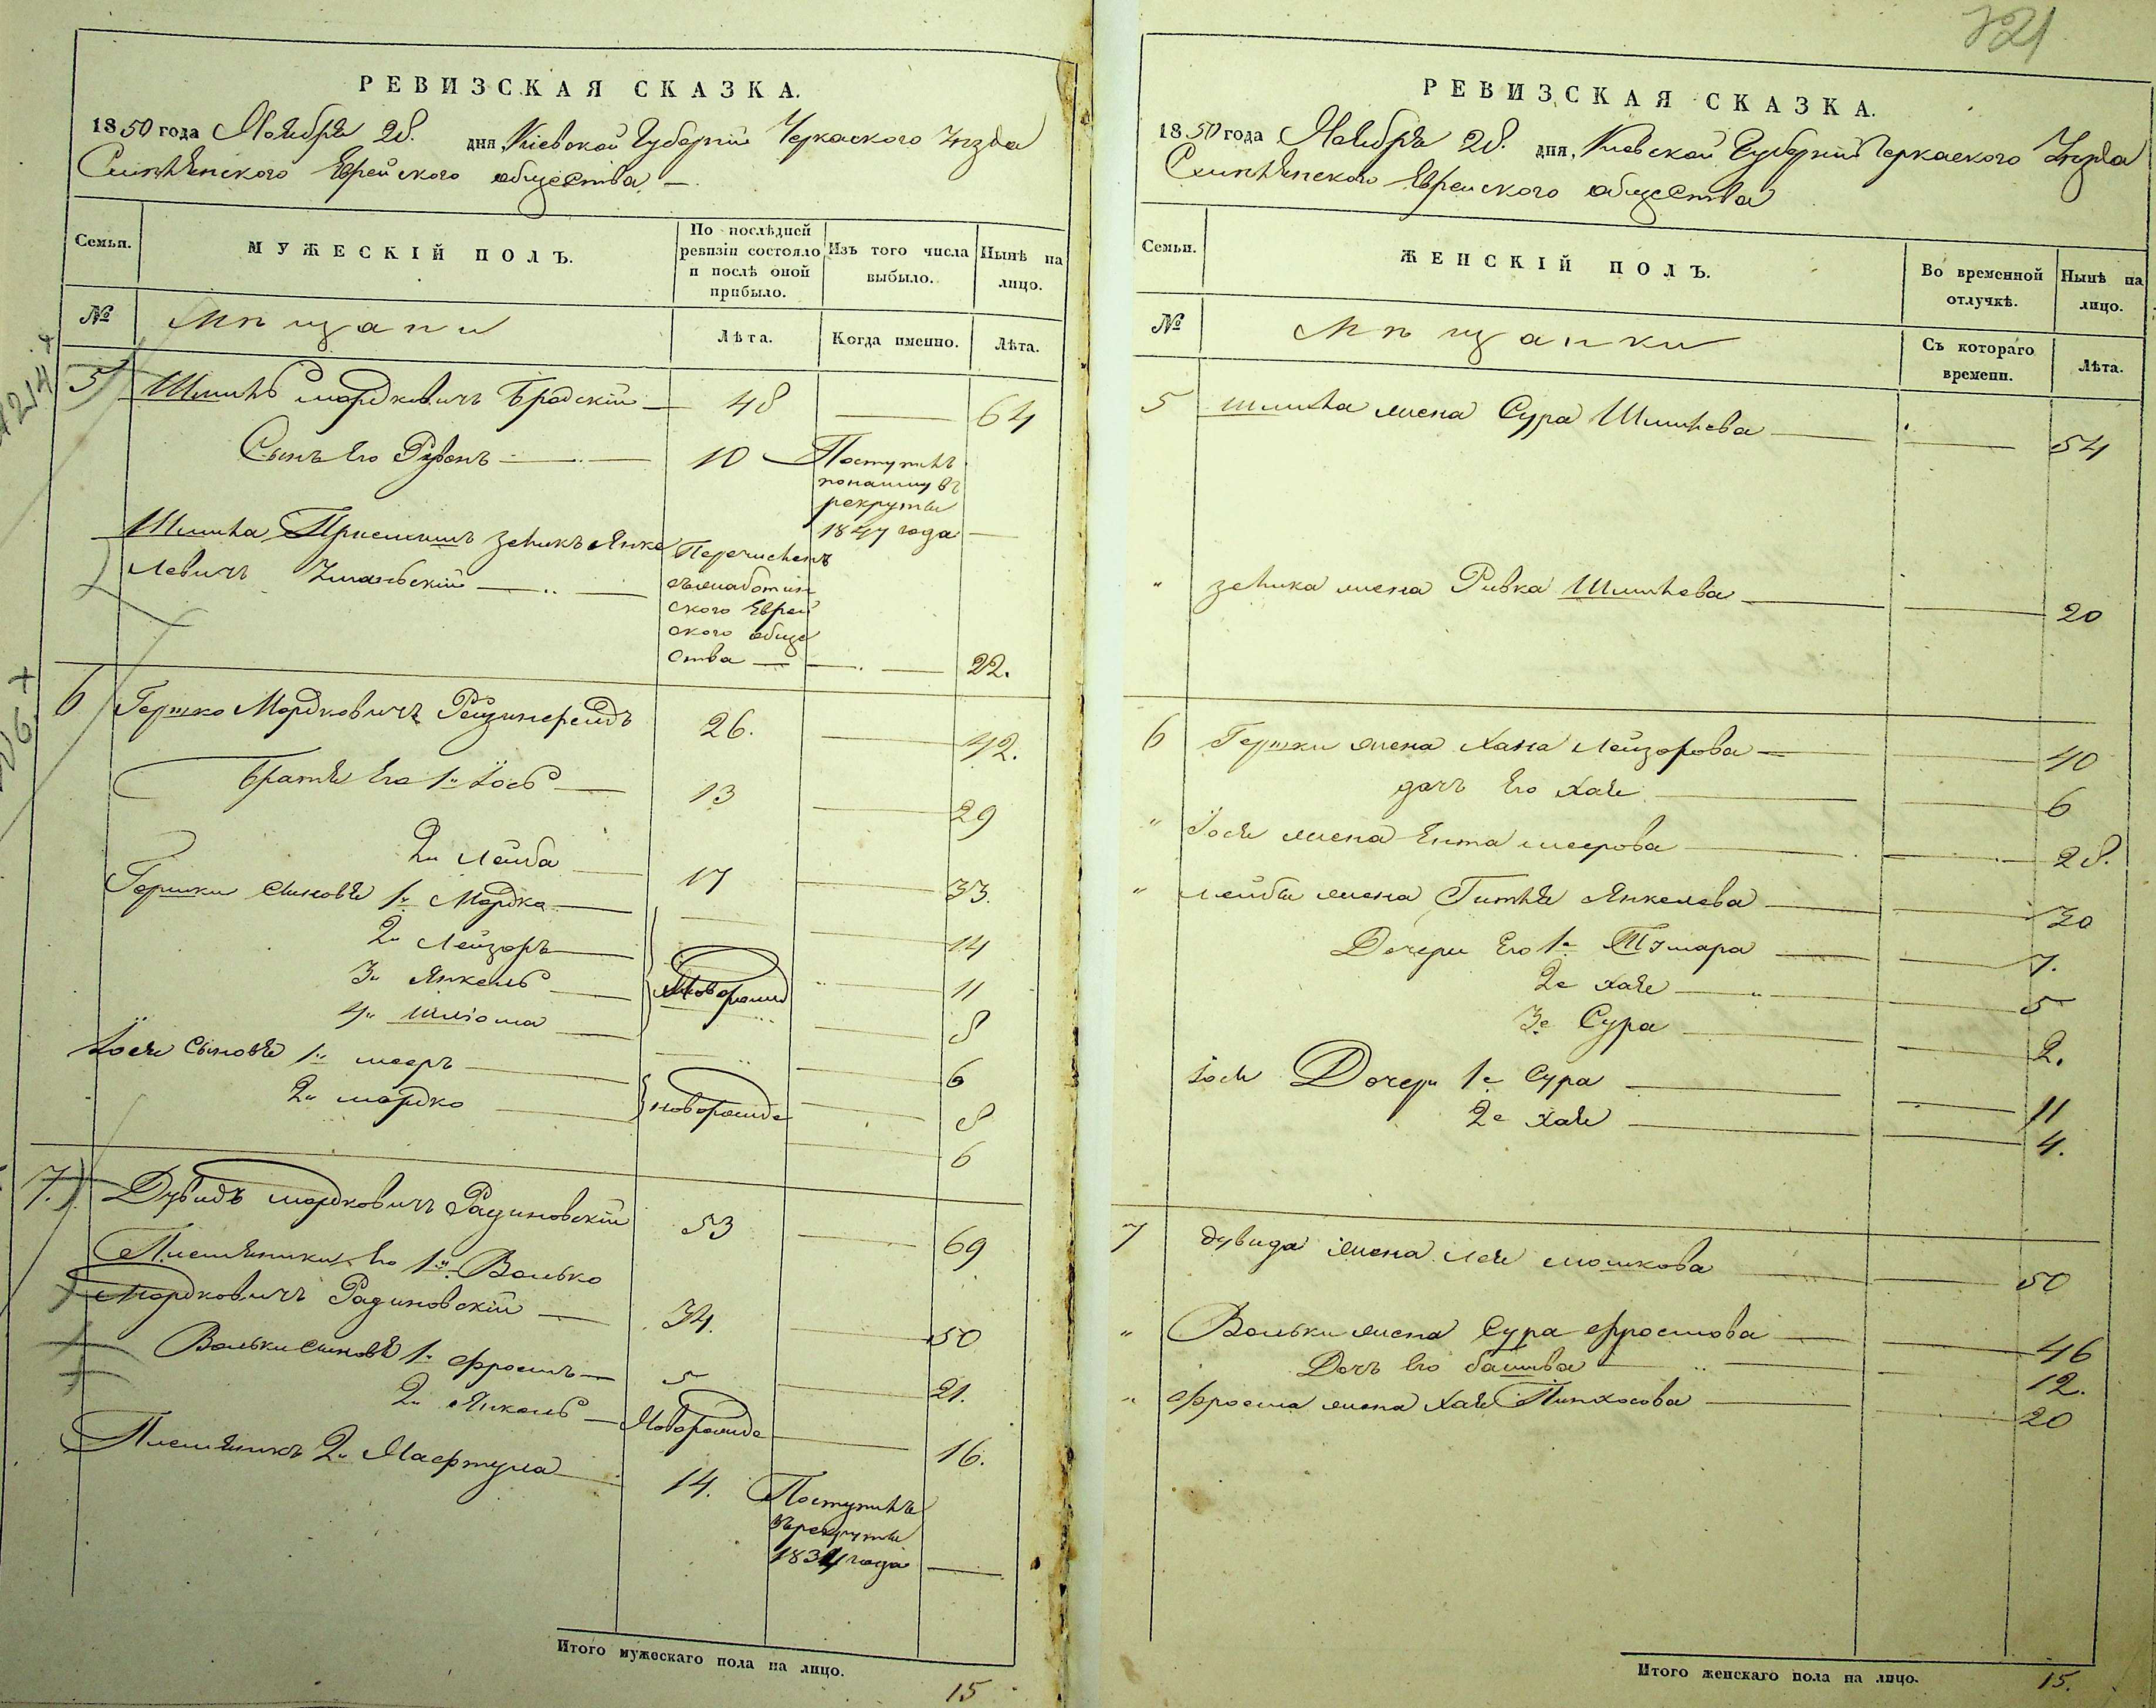 РЕВИЗСКАЯ СКАЗКА.
1850 года Ноября 28. дня, Кіевской Губерніи Черкаского Уезда
Смѣлянского Еврейского общества. —
Семьи.
МУЖЕСКІЙ ПОЛЪ.
По послѣдней ревизіи состояло и послѣ оной прибыло.
Изъ того числа выбыло.
Нынѣ на лицо.
№
Мѣщани
Лѣта.
Когда именно.
Лѣта.
5) Шмилъ Мордковичъ Бродскій — 48 — 64
Сынъ Его Рувенъ — 10 Поступилъ
понайму въ
рекруты
1847 года —
Шмиля Приемишъ зять Янке
левичъ Уманьскій — Перечисленъ
ского Еврей
ского обще
ства — — 22.
6 Гершко Мордковичъ 26. — 42.
Братья Его 1й Іось — 13 — 29
2й Лейба — 17 — 33.
Гершки сыновья 1й Мордко — — 14
2й Лейзоръ — — 11
3й Янкель — Новорожд — 8
4й Шлiома — — 6
Іося сыновья 1й мееръ — — 8
2й мордко — новорожде — 6
7.) Дувидъ мордковичъ Радиновскій 53 — 69
Племянники Его 1й Волько
Мордковичъ Радиновскій — 34. — 50
Вольки сыновья 1й Фроимъ — 5 — 21.
2й Янкель — Новорожде — 16.
Племяникъ 2й Нафтула — 14. Поступилъ
въ рекруты
1834 года —
Итого мужескаго пола на лицо.
15
721
РЕВИЗСКАЯ СКАЗКА.
1850 года Ноября 28. дня, Киевской Губерніи Черкаского Уезда
Смѣлянского Еврейского общества
Семьи.
ЖЕНСКІЙ ПОЛЪ.
Во временной отлучкѣ.
Нынѣ на лицо.
№
Мѣщанки
Съ котораго времени.
Лѣта.
5 Шмиля жена Сура Шмилева — — 54
" зятя жена Ривка Шмилева — — 20
6 Гершки жена Хана Лейзорова — — 40
дочь Его Хая — — 6
" Іося жена Ента меерова — — 28.
" лейбы жена Гитля Янкелева — — 30
Дочери Его 1я Тэмара — — 7.
2я Хая — — 5
3я Сура — — 2.
Іося Дочери 1я Сура — — 11
2я Хая — — 4.
7 дувида жена Лея мошкова — — 50
" Вольки жена Сура Фроимова — — 46
Дочь Его башива — — 12.
" Фроима жена Хая Пинхосова — — 20
Итого женскаго пола на лицо.
15.